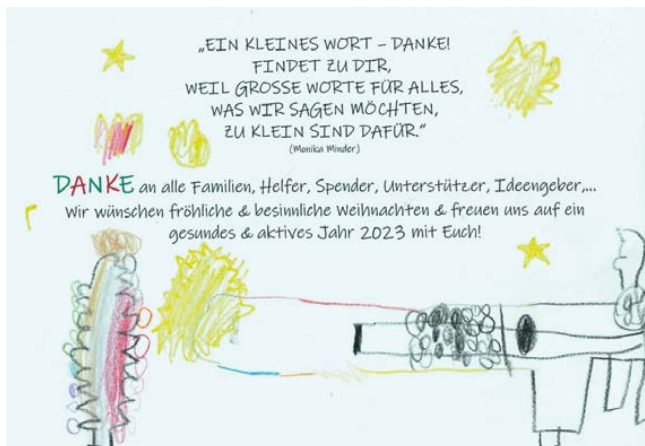 „EIN KLEINES WORT – DANKE!
FINDET ZU DIR,
WEIL GROSSE WORTE FÜR ALLES,
WAS WIR SAGEN MÖCHTEN,
ZU KLEIN SIND DAFÜR.“
(Monika Minder)
DANKE an alle Familien, Helfer, Spender, Unterstützer, Ideengeber,...
Wir wünschen fröhliche & besinnliche Weihnachten & freuen uns auf ein
gesundes & aktives Jahr 2023 mit Euch!